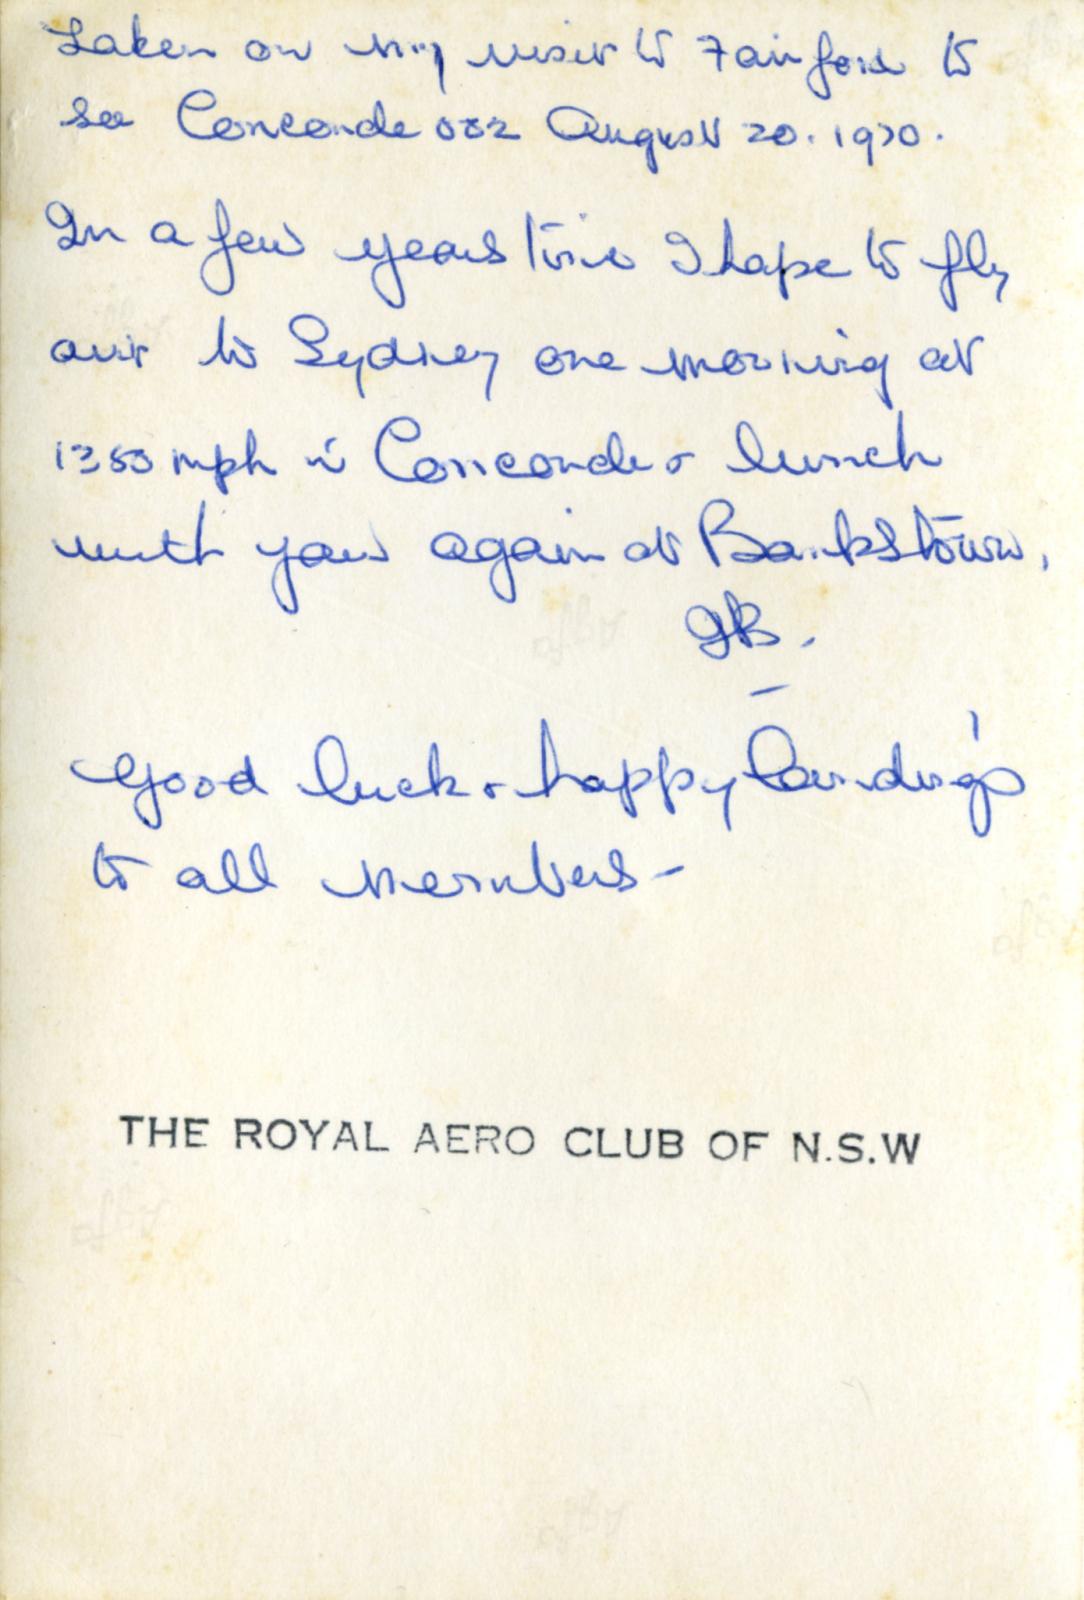 Taken on my visit to Fairford to
see Concorde 002 August 20. 1970.
In a few years time I hope to fly
out to Sydney one morning at
1350 mph in Concorde & lunch
with you again at Bankstown.
GB.
Good luck & happy landings
to all members -
THE ROYAL AERO CLUB OF N.S.W